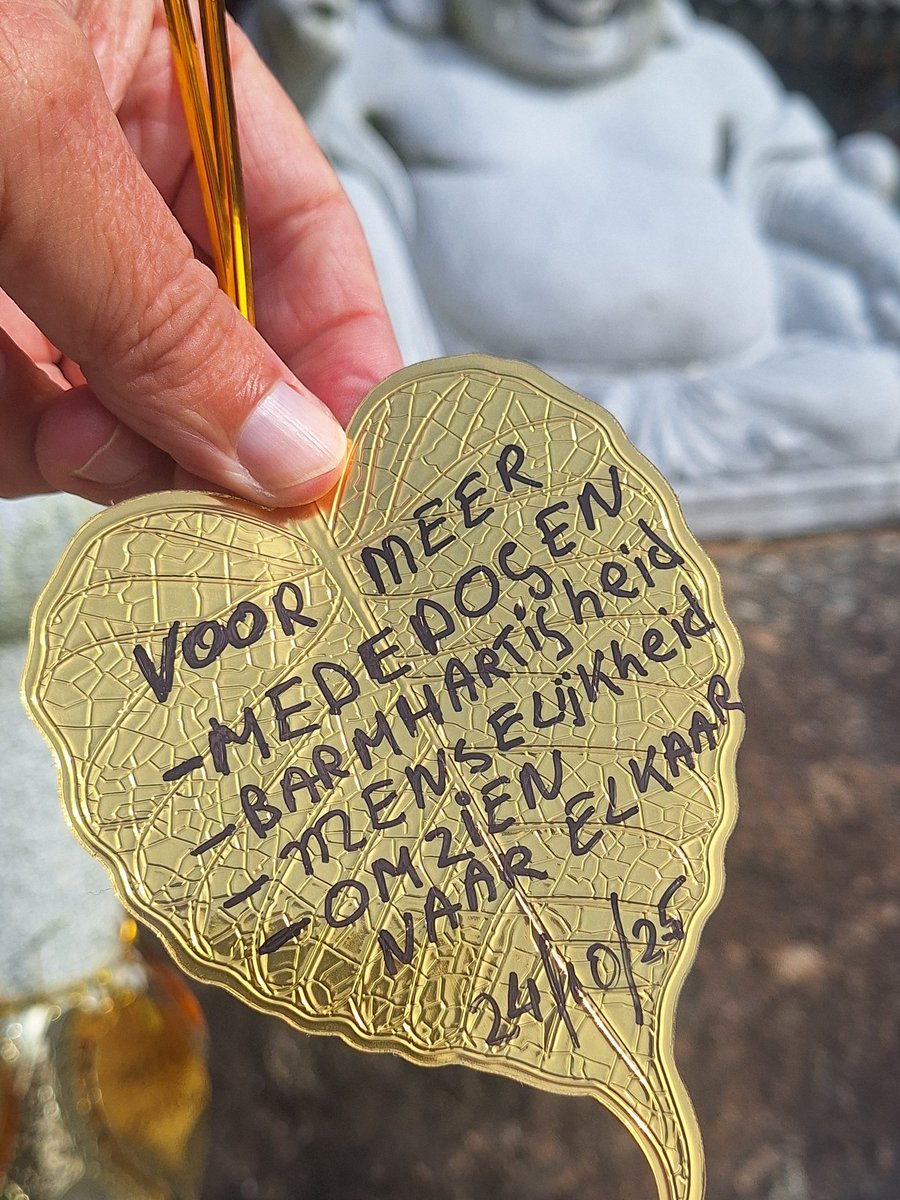 VOOR MEER
- MEDEDOGEN
- BARMHARTIGheid
- MENSELijKheid
- OMZiEN
NAAR ELKAAR
24/10/25